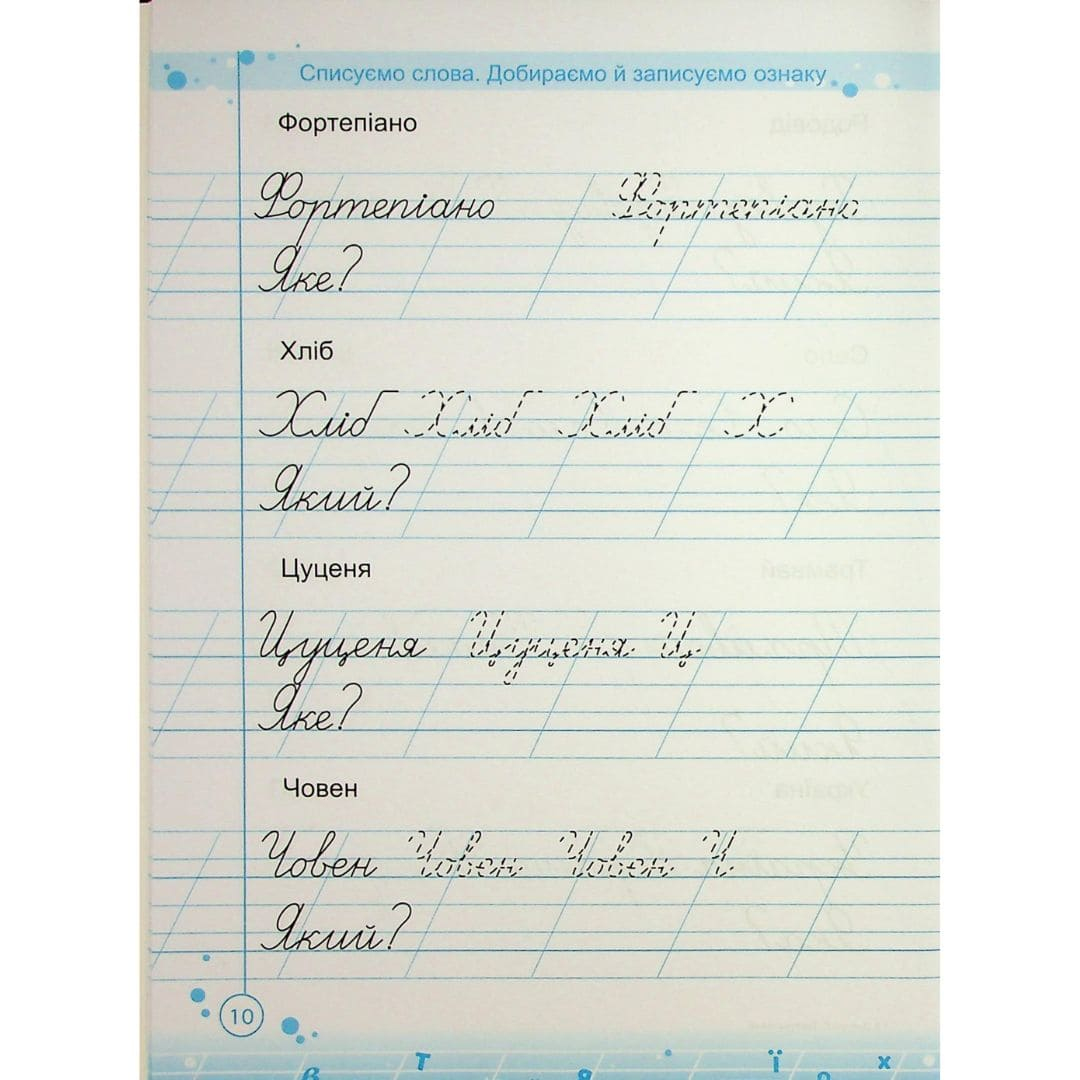 Списуємо слова. Добираємо й записуємо ознаку
Фортепіано
Фортепіано Фортепіано
Яке?
Хліб
Хліб Хліб Хліб Х
Який?
Цуценя
Цуценя Цуценя Ц
Яке?
Човен
Човен Човен Човен Ч
Який?
10
в т й я ї о х